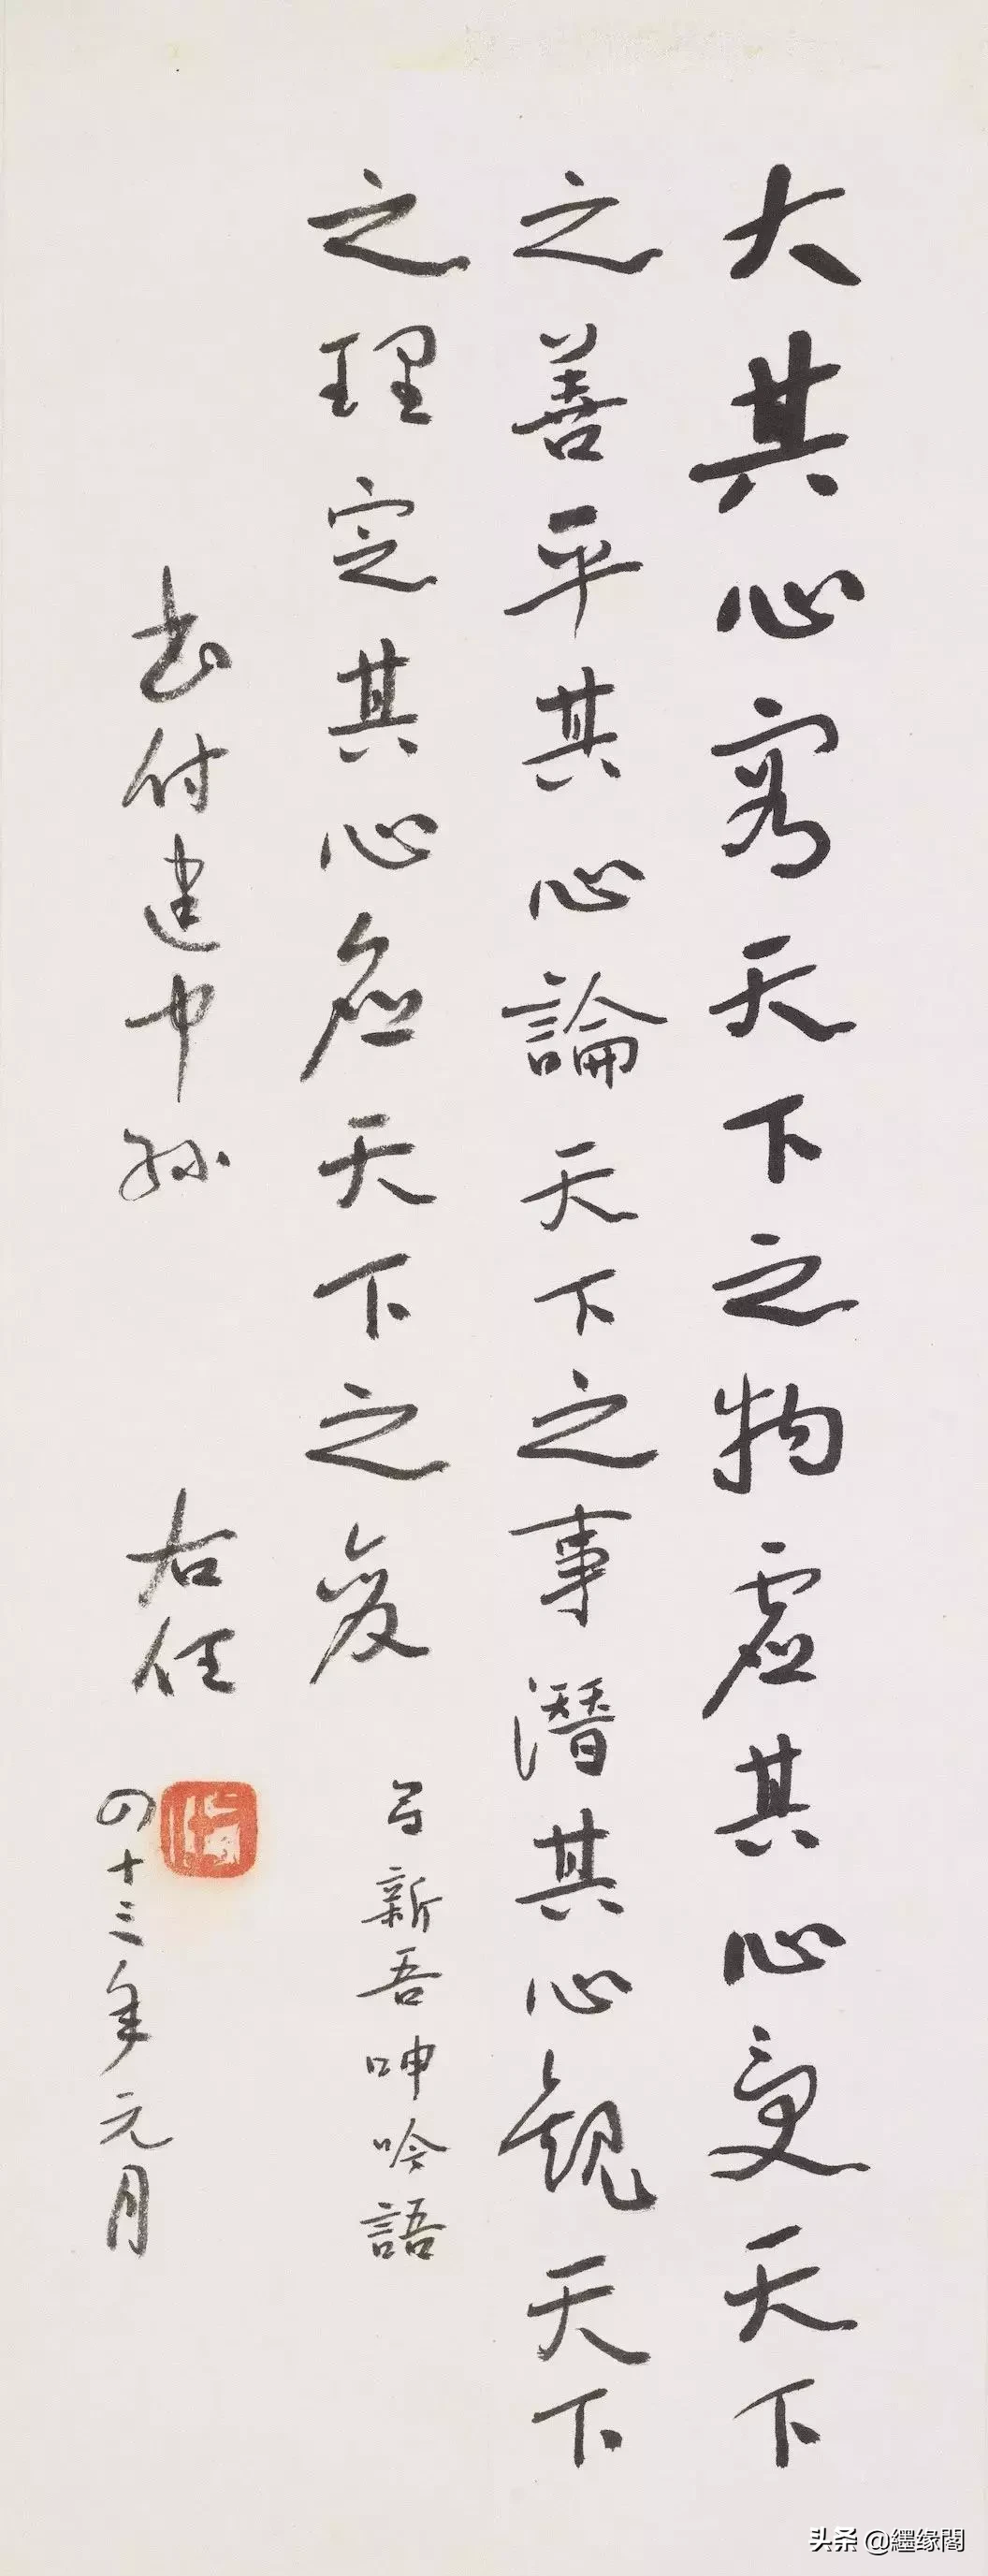 大其心容天下之物虛其心受天下
之善平其心論天下之事潛其心觀天下
之理定其心應天下之變
呂新吾呻吟語
書付建中孫
右任
四十三年元月
右任
头条 @缘閣